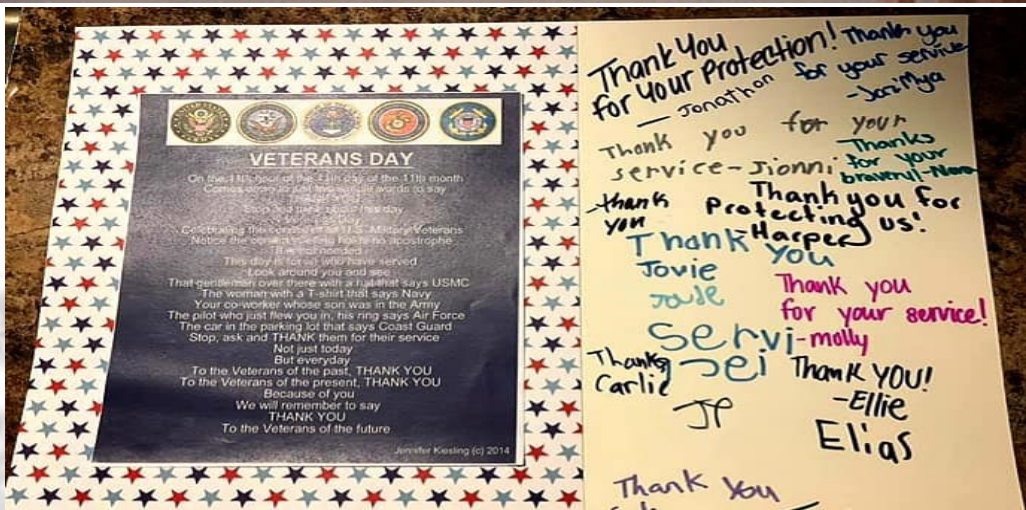 VETERANS DAY
On the 11th hour of the 11th day of the 11th month
Comes down to just two simple words to say
Stop and think about this day
Celebrating the service of all U.S. Military Veterans
Notice the correct spelling has no apostrophe
This day is for all who have served
Look around you and see
That gentleman over there with a hat that says USMC
The woman with a T-shirt that says Navy
Your co-worker whose son was in the Army
The pilot who just flew you in, his ring says Air Force
The car in the parking lot that says Coast Guard
Stop, ask and THANK them for their service
Not just today
But everyday
To the Veterans of the past, THANK YOU
To the Veterans of the present, THANK YOU
Because of you
We will remember to say
THANK YOU
To the Veterans of the future
Jennifer Kiesling (c) 2014
Thank You
for Your Protection!
— Jonathon
Thank you
for your service
-JoziMya
Thank you for your
service-Jionni
Thanks
for your
bravery!-Nora
-thank
you
Thank you for
Protecting us!
-Harper
Thank you
Jovie
Jode
Servi
Jei
Thank you
for your service!
-molly
Thanks
Carlie
JP
Thank YOU!
-Ellie
Elias
Thank You